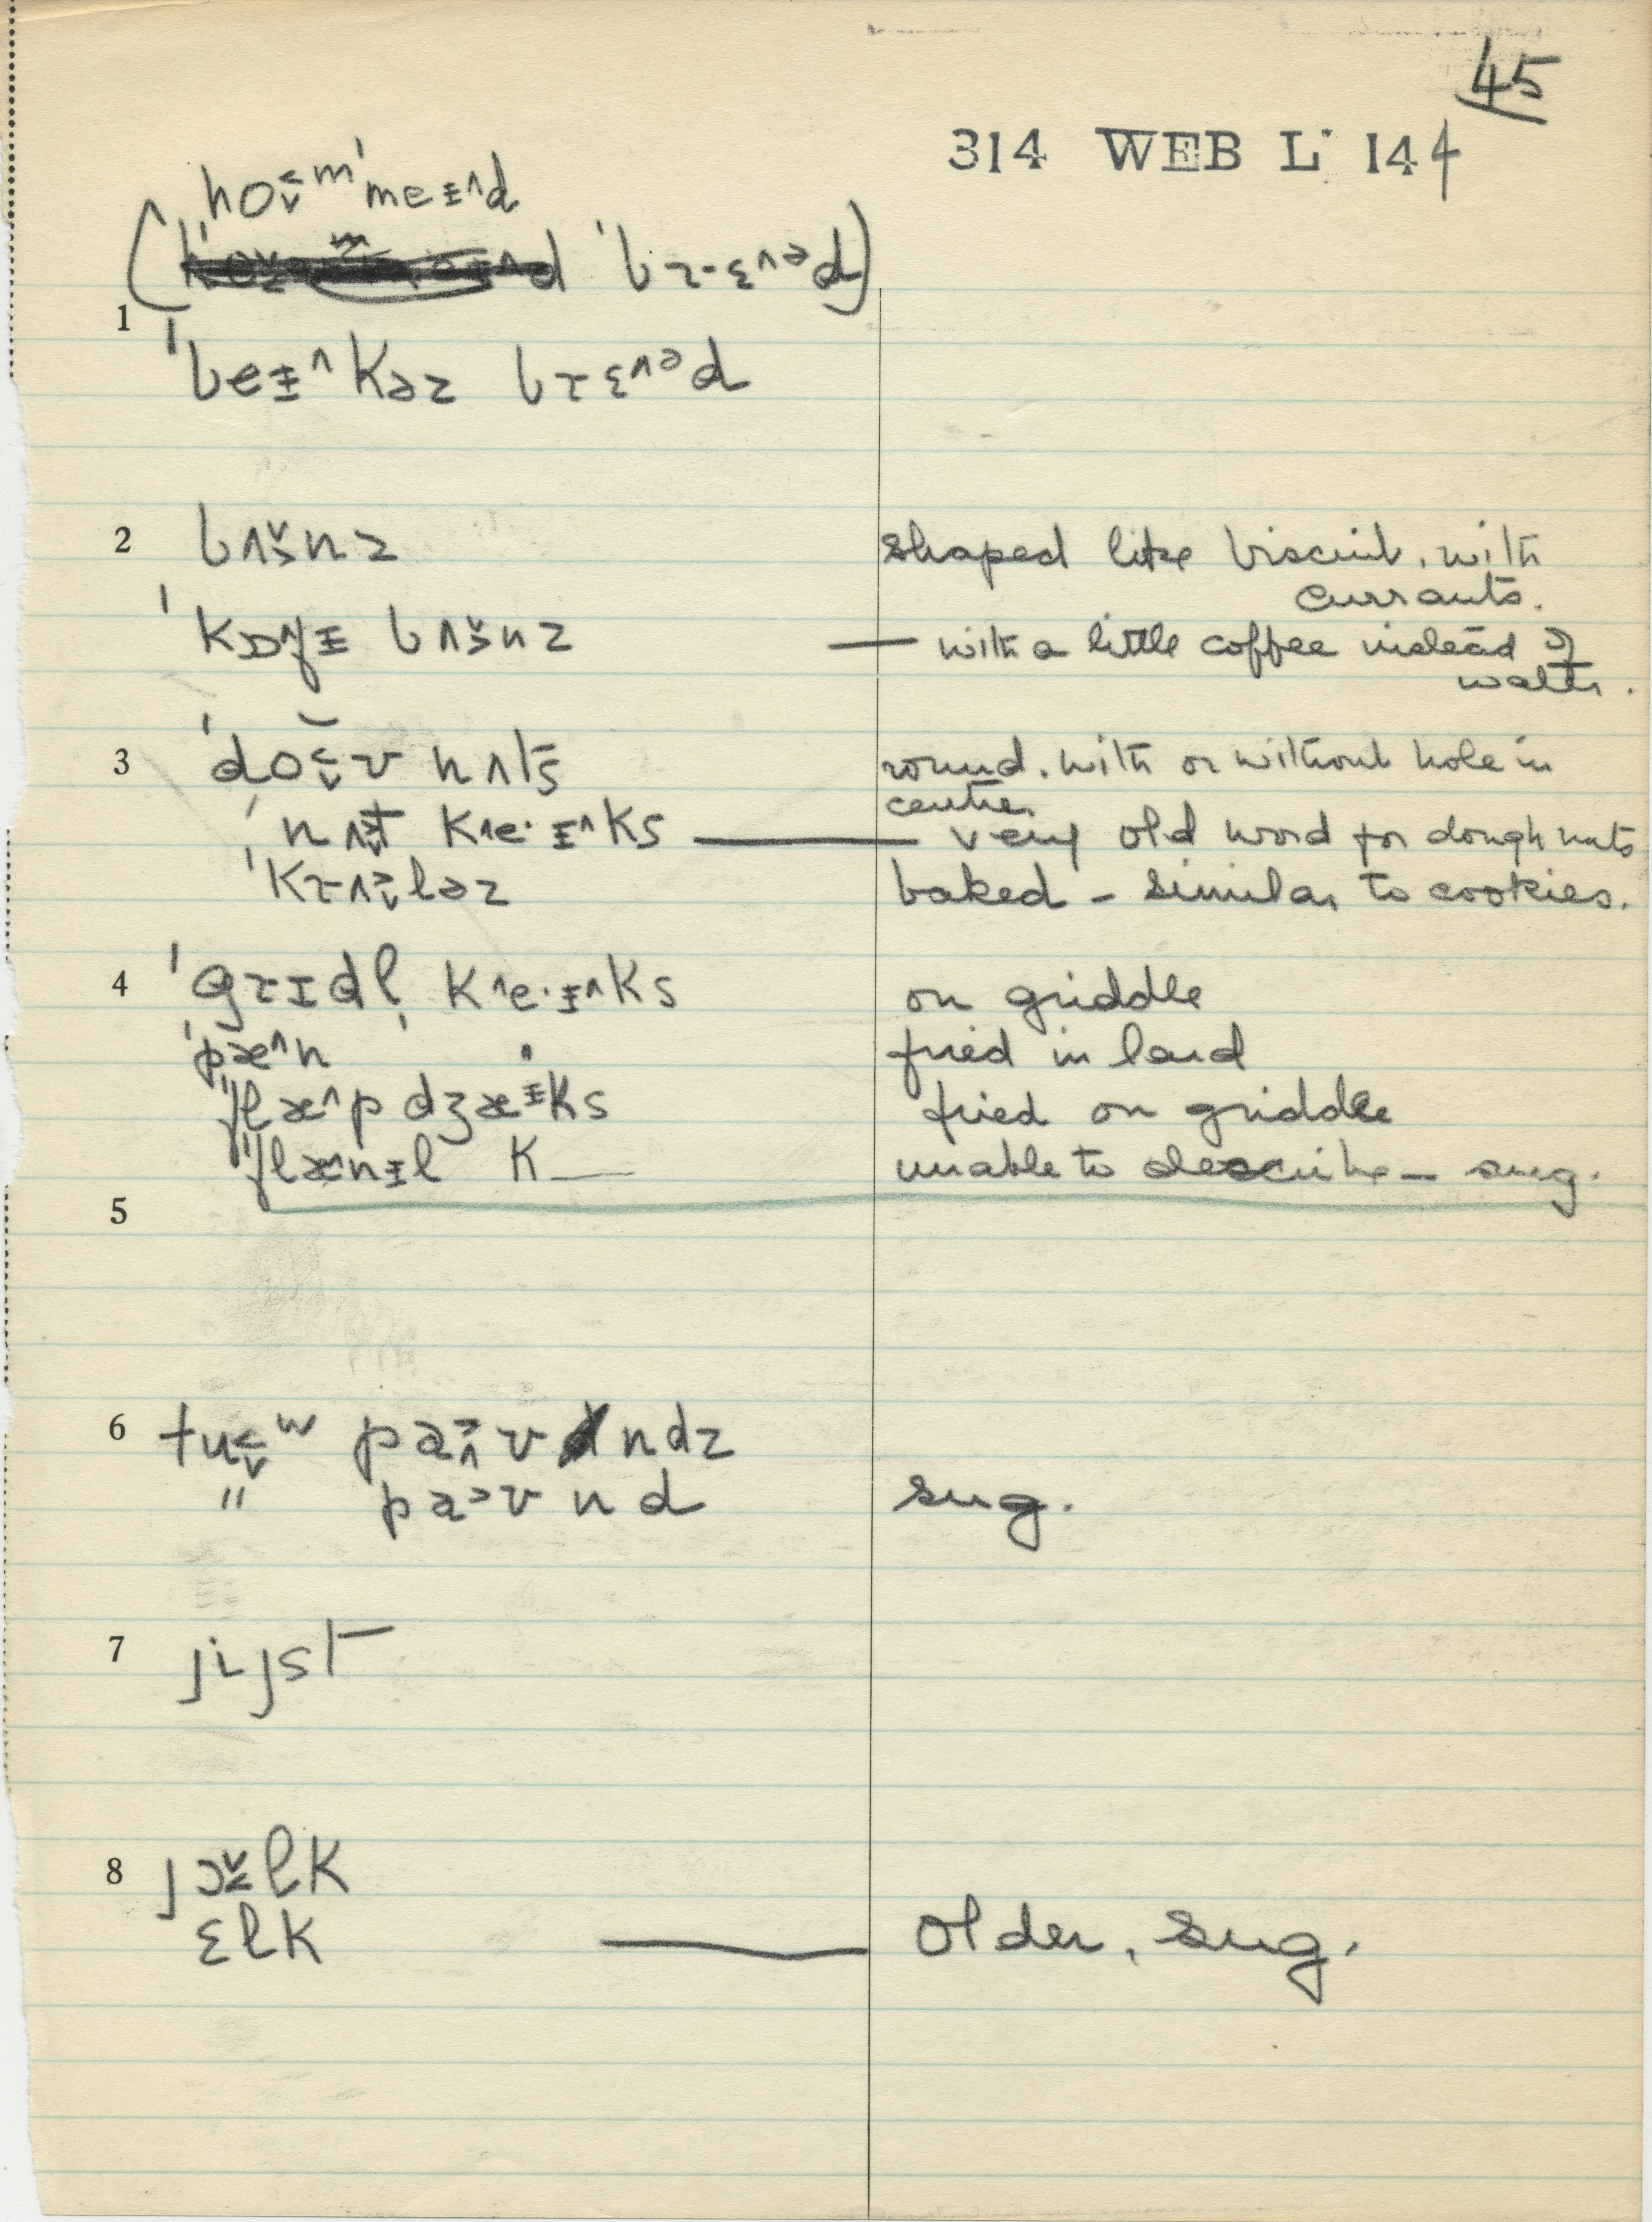 45
314 WEB L 144
(hoʊ˂˅ᵐ ˈmeɨ˄d
ˈbɽ·ɛ˄ᵊd)
1 ˈbeɨ˄kəɽ bɽɛ˄ᵊd
2 bʌ˃˅nz shaped like biscuit. with
currants.
ˈkɒ˄fɨ bʌ˃˅nz — with a little coffee instead of
water.
3 ˈdo˂˅ʊ nʌts round. with or without hole in
centre.
ˈnʌ˃˅t k˄e·ɨ˄ks — very old word for doughnuts
ˈkɽʌ˃˅ləɽ baked – similar to cookies.
4 ˈgɽɪdl̩ k˄e·ɨ˄ks on griddle
ˈpæ˄n " fried in lard
ˈflæ˄pdʒæᶤks fried on griddle
ˈflæ˄nɨl k— unable to describe – sug.
5
6 tu˂˅ʷ pa˃˄ʊndz
" pa˃ʊnd sug.
7 jijst
8 jɔ˅˂lk
ɛlk — Older, sug.